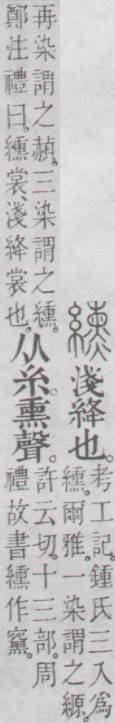 纁 淺絳也。
考工記。鍾氏三入爲
纁。爾雅。一染謂之縓。
再染謂之赬。三染謂之纁。
鄭注禮曰。纁裳、淺絳裳也。
从糸。熏聲。
許云切。十三部。周
禮故書纁作